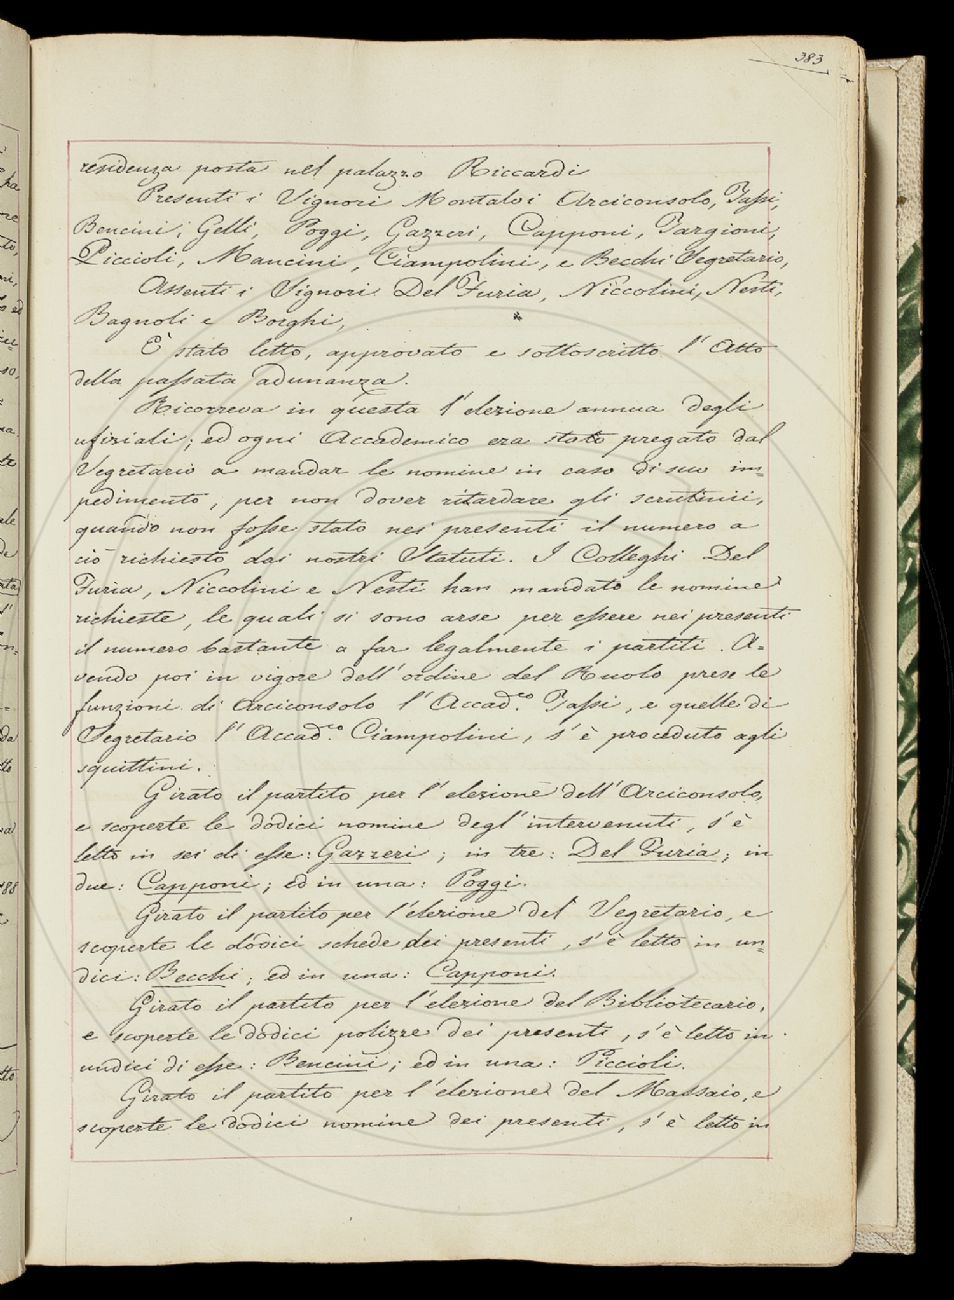 383
residenza posta nel palazzo Riccardi
Presenti i Signori Montalvi Arciconsolo, Tassi,
Bencini, Gelli, Poggi, Gazzeri, Capponi, Targioni,
Piccioli, Mancini, Ciampolini, e Becchi Segretario,
Assenti i Signori Del Furia, Niccolini, Nesti,
Bagnoli e Borghi,
È stato letto, approvato e sottoscritto l'Atto
della passata adunanza.
Ricorreva in questa l'elezione annua degli
ufiziali; ed ogni Accademico era stato pregato dal
Segretario a mandar le nomine in caso di suo im=
pedimento, per non dover ritardare gli scrutinii,
quando non fosse stato nei presenti il numero a
ciò richiesto dai nostri Statuti. I Colleghi Del
Furia, Niccolini e Nesti han mandato le nomine
richieste, le quali si sono arse per essere nei presenti
il numero bastante a far legalmente i partiti. A=
vendo poi in vigore dell'ordine del Ruolo prese le
funzioni di Arciconsolo l'Accad.co Tassi, e quelle di
Segretario l'Accad.co Ciampolini, s'è proceduto agli
squittini.
Girato il partito per l'elezione dell'Arciconsolo,
e scoperte le dodici nomine degl'intervenuti, s'è
letto in sei di esse: Gazzeri; in tre: Del Furia; in
due: Capponi; ed in una: Poggi.
Girato il partito per l'elezione del Segretario, e
scoperte le dodici schede dei presenti, s'è letto in un=
dici: Becchi; ed in una: Capponi.
Girato il partito per l'elezione del Bibliotecario,
e scoperte le dodici polizze dei presenti, s'è letto in
undici di esse: Bencini; ed in una: Piccioli.
Girato il partito per l'elezione del Massaio, e
scoperte le dodici nomine dei presenti, s'è letto in